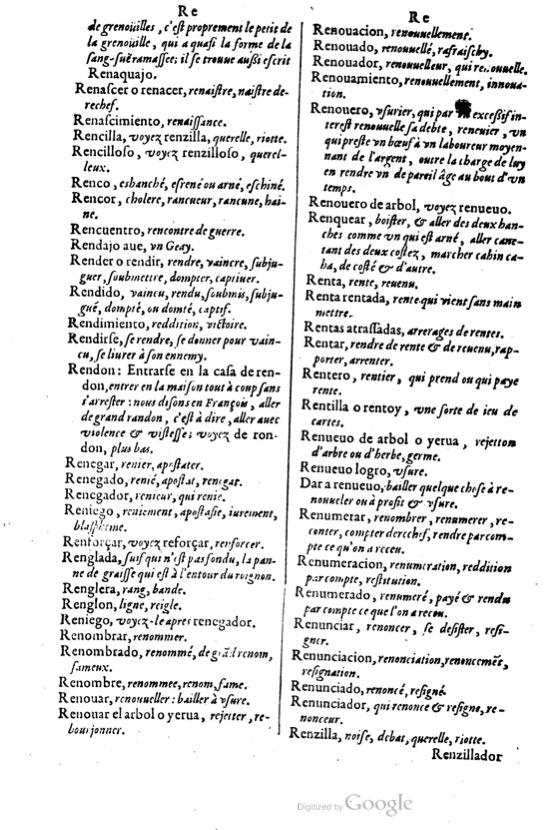 Re
de grenoüilles, c'est proprement le petit de
la grenoüille, qui a quasi la forme de la
sang-suë ramassee; il se trouue aussi escrit
Renaquajo.
Renascer o renacer, renaistre, naistre de-
rechef.
Renascimiento, renaissance.
Rencilla, voyez renzilla, querelle, riotte.
Rencilloso, voyez renzilloso, querel-
leux.
Renco, eshanché, esrené ou arné, eschiné.
Rencor, cholere, rancueur, rancune, hai-
ne.
Rencuentro, rencontre de guerre.
Rendajo aue, vn Geay.
Render o rendir, rendre, vaincre, subju-
guer, soubmettre, dompter, captiuer.
Rendido, vaincu, rendu, soubmis, subju-
gué, dompté, ou domté, captif.
Rendimiento, reddition, victoire.
Rendirse, se rendre, se donner pour vain-
cu, se liurer à son ennemy.
Rendon: Entrarse en la casa de ren-
don, entrer en la maison tout à coup sans
s'arrester: nous disons en François, aller
de grand randon, c'est à dire, aller auec
violence & vistesse; voyez de ron-
don, plus bas.
Renegar, renier, apostater.
Renegado, renié, apostat, renegat.
Renegador, renieur, qui renie.
Reniego, reniement, apostasie, iurement,
blaspheme.
Renforçar, voyez reforçar, renforcer.
Renglada, suif qui n'est pas fondu, la pan-
ne de graisse qui est à l'entour du roignon.
Renglera, rang, bande.
Renglon, ligne, reigle.
Reniego, voyez-le apres renegador.
Renombrar, renommer.
Renombrado, renommé, de grãd renom,
fameux.
Renombre, renommee, renom, fame.
Renouar, renouueller: bailler à vsure.
Renouar el arbol o yerua, rejetter, re-
bourjonner.
Re
Renouacion, renouuellement.
Renouado, renouuellé, rafraischy.
Renouador, renouuelleur, qui renouuelle.
Renouamiento, renouuellement, innoua-
tion.
Renouero, vsurier, qui par vn excessif in-
terest renouuelle sa debte, reneuier, vn
qui preste vn bœuf à vn laboureur moyen-
nant de l'argent, outre la charge de luy
en rendre vn de pareil âge au bout d'vn
temps.
Renouero de arbol, voyez renueuo.
Renquear, boister, & aller des deux han-
ches comme vn qui est arné, aller cane-
tant des deux costez, marcher cahin ca-
ha, de costé & d'autre.
Renta, rente, reuenu.
Renta rentada, rente qui vient sans main
mettre.
Rentas atrassadas, arrerages de rentes.
Rentar, rendre de rente & de reuenu, rap-
porter, arrenter.
Rentero, rentier, qui prend ou qui paye
rente.
Rentilla o rentoy, vne sorte de ieu de
cartes.
Renueuo de arbol o yerua, rejetton
d'arbre ou d'herbe, germe.
Renueuo logro, vsure.
Dar a renueuo, bailler quelque chose à re-
nouueler ou à profit & vsure.
Renumerar, renombrer, renumerer, re-
conter, compter derechef, rendre par com-
pte ce qu'on a receu.
Renumeracion, renumeration, reddition
par compte, restitution.
Renumerado, renumeré, payé & rendu
par compte ce que l'on a receu.
Renunciar, renoncer, se desister, resi-
gner.
Renunciacion, renonciation, renoncemẽt,
resignation.
Renunciado, renoncé, resigné.
Renunciador, qui renonce & resigne, re-
nonceur.
Renzilla, noise, debat, querelle, riotte.
Renzillador
Digitized by Google